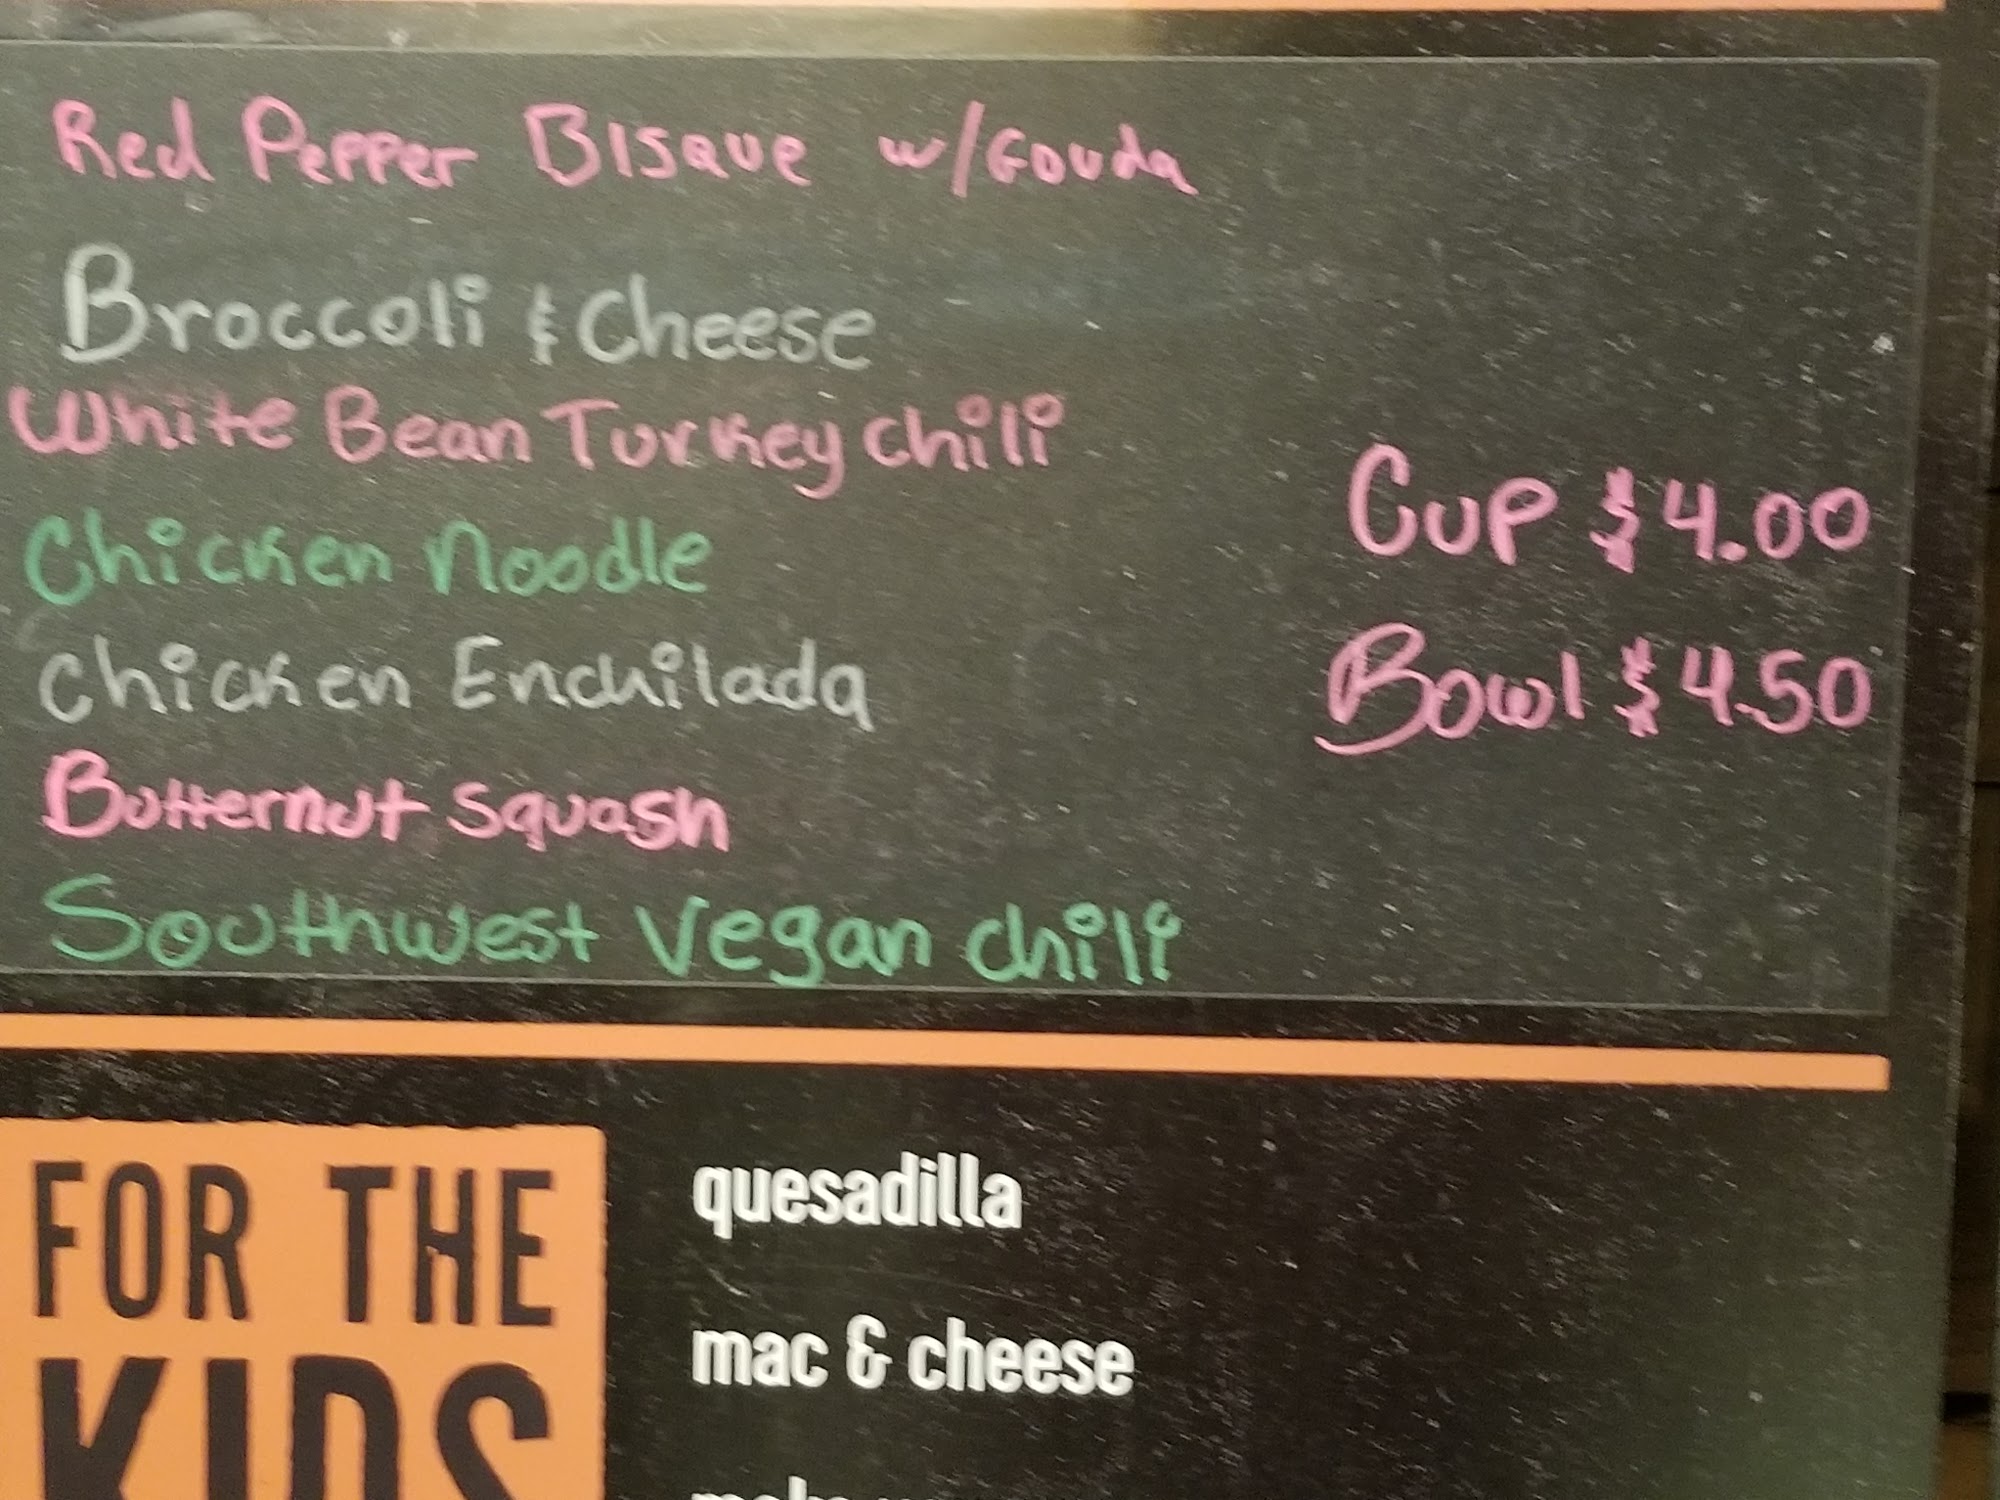 Red Pepper Bisque w/Gouda
Broccoli & Cheese
White Bean Turkey Chili
Chicken Noodle
Chicken Enchilada
Butternut Squash
Southwest Vegan Chili
Cup $4.00
Bowl $4.50
FOR THE
KIDS
quesadilla
mac & cheese